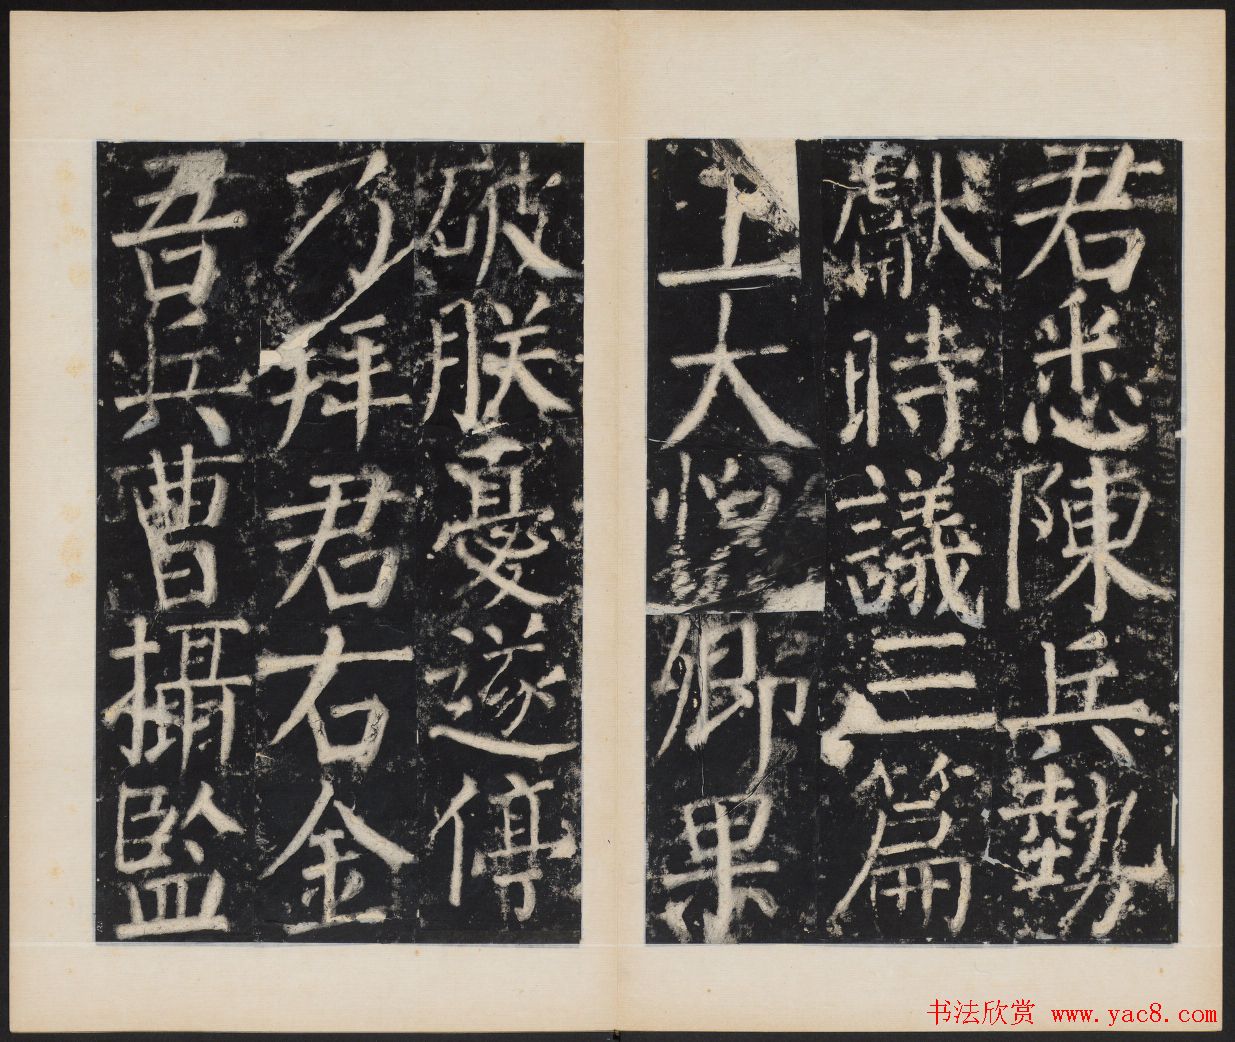 君悉陳兵勢
獻時議三篇
上大悅卿果
破朕憂遂停
乃拜君右金
吾兵曹攝監
书法欣赏 www.yac8.com